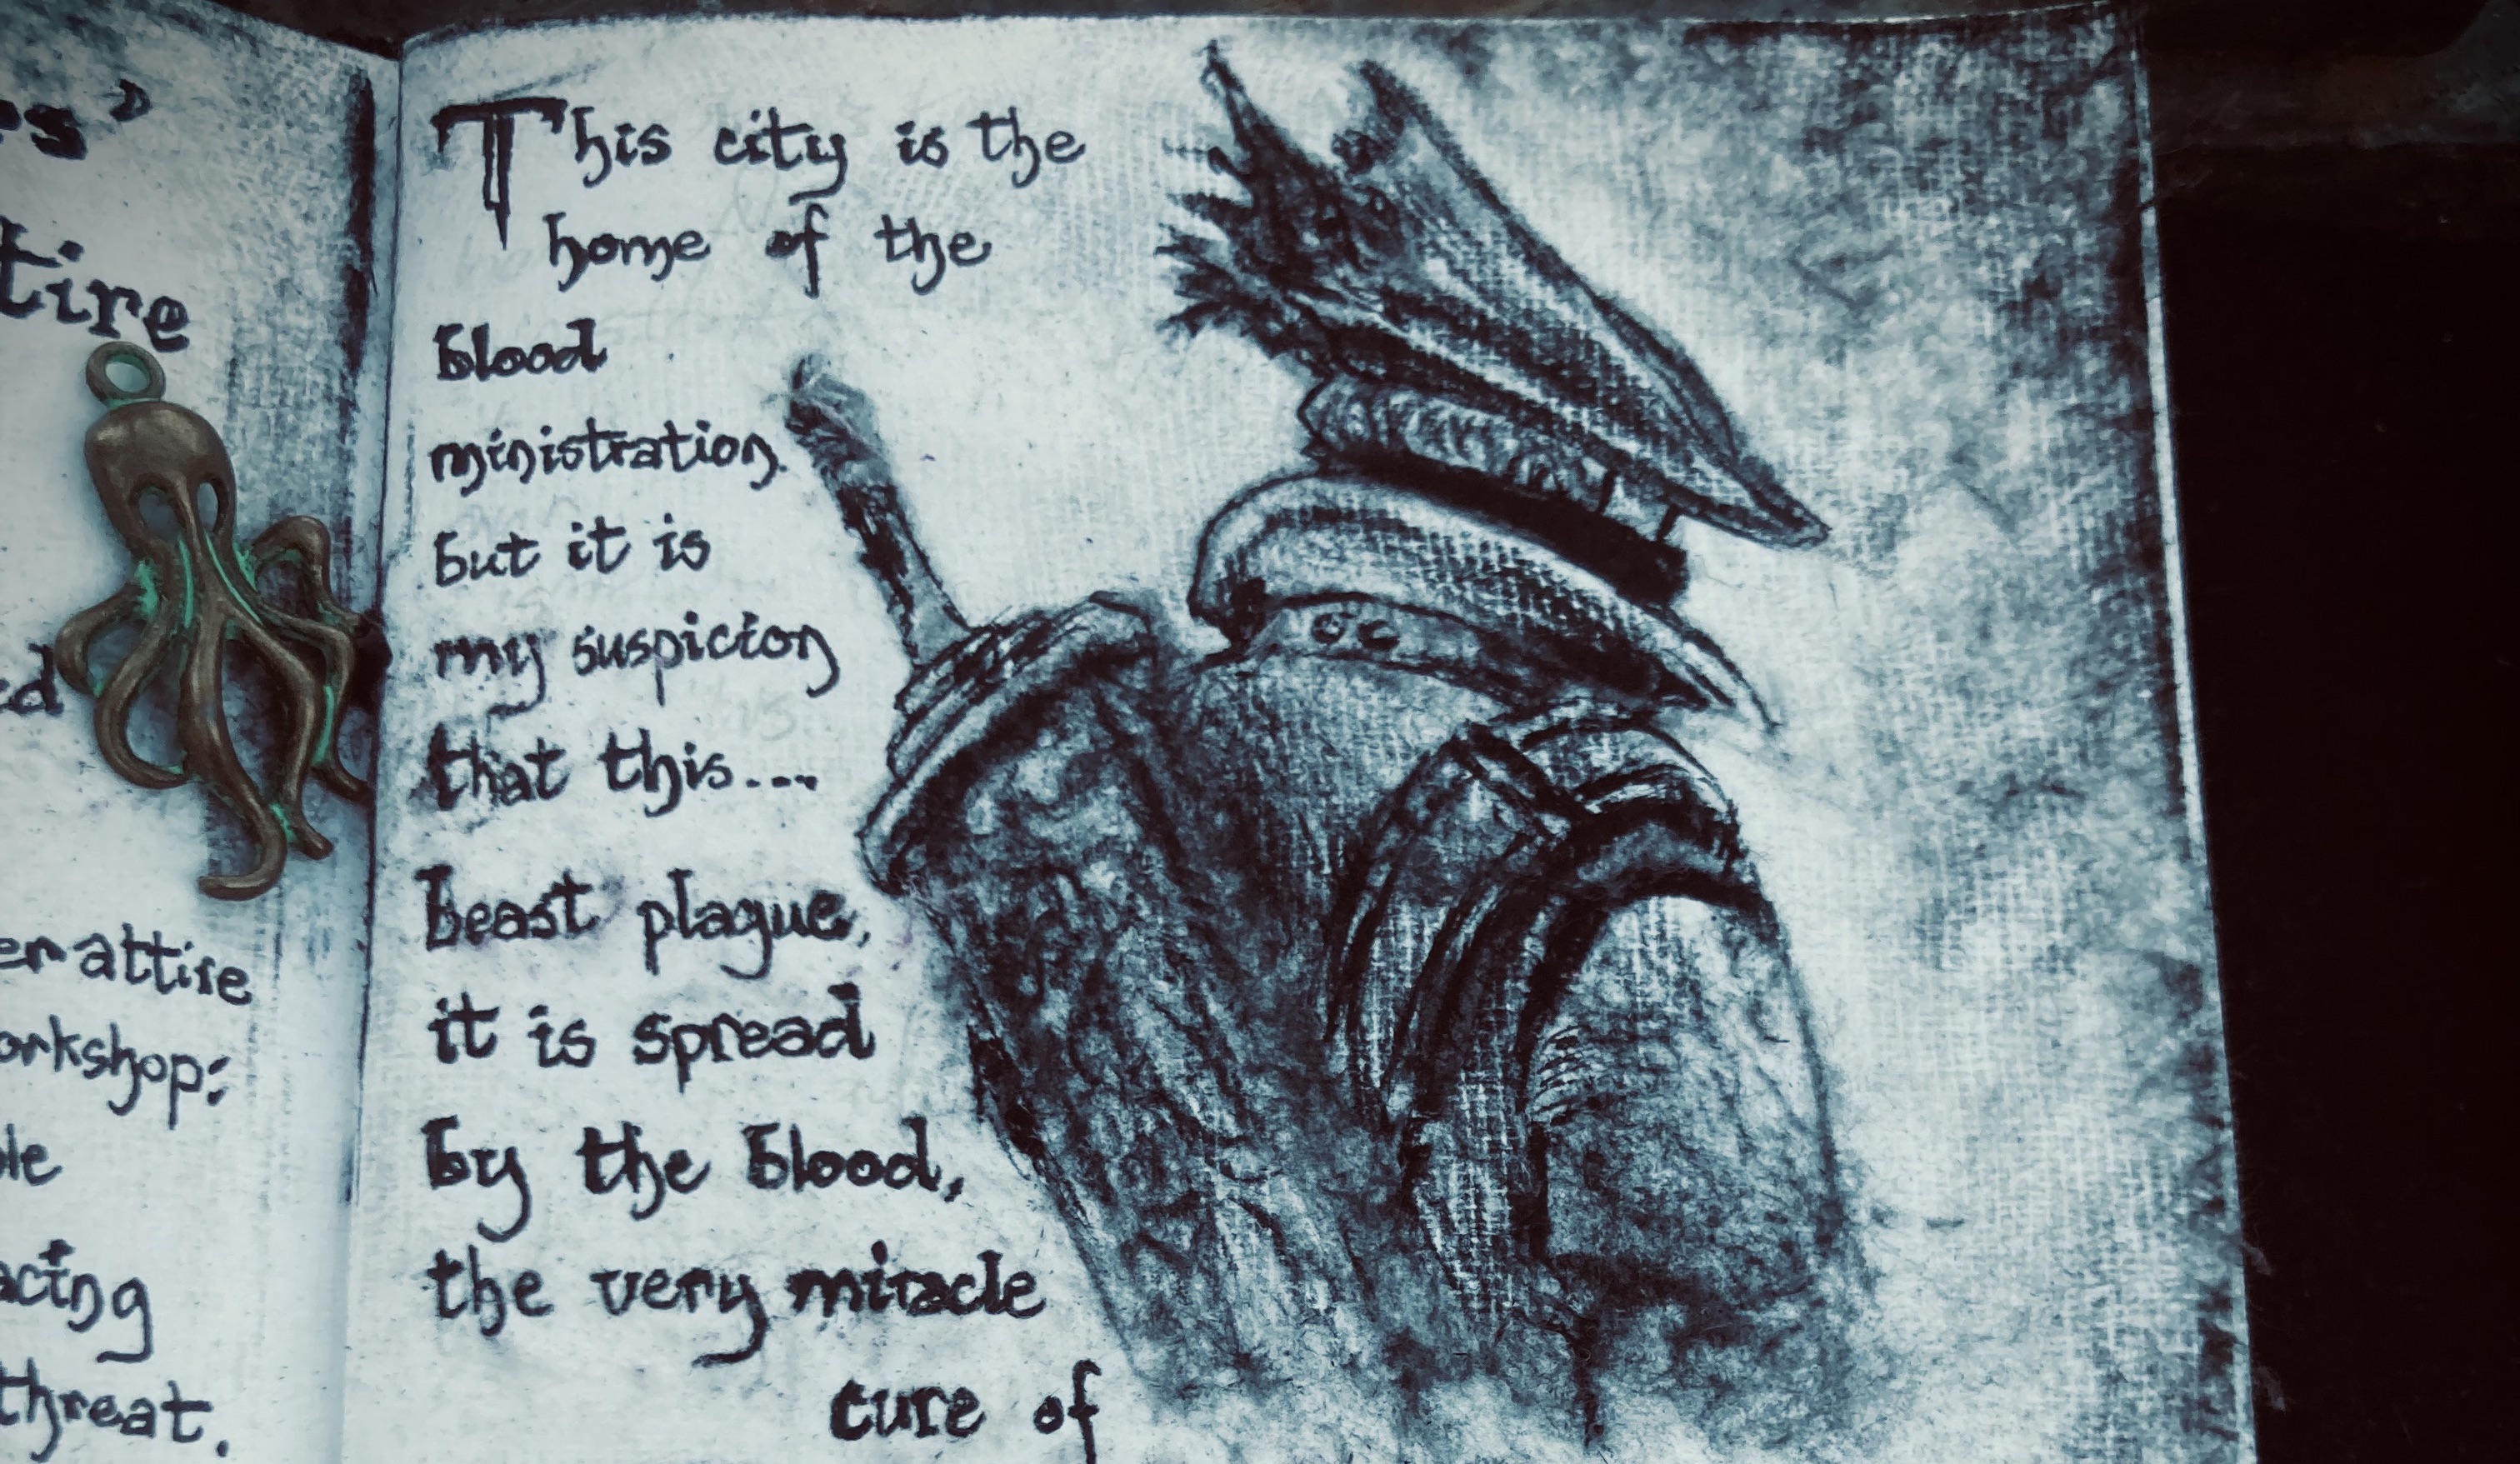 s"
tire
ed
er attire
orkshop:
le
acing
threat.
This city is the
home of the
blood
ministration.
but it is
my suspicion
that this....
beast plague,
it is spread
by the blood,
the very miracle
cure of